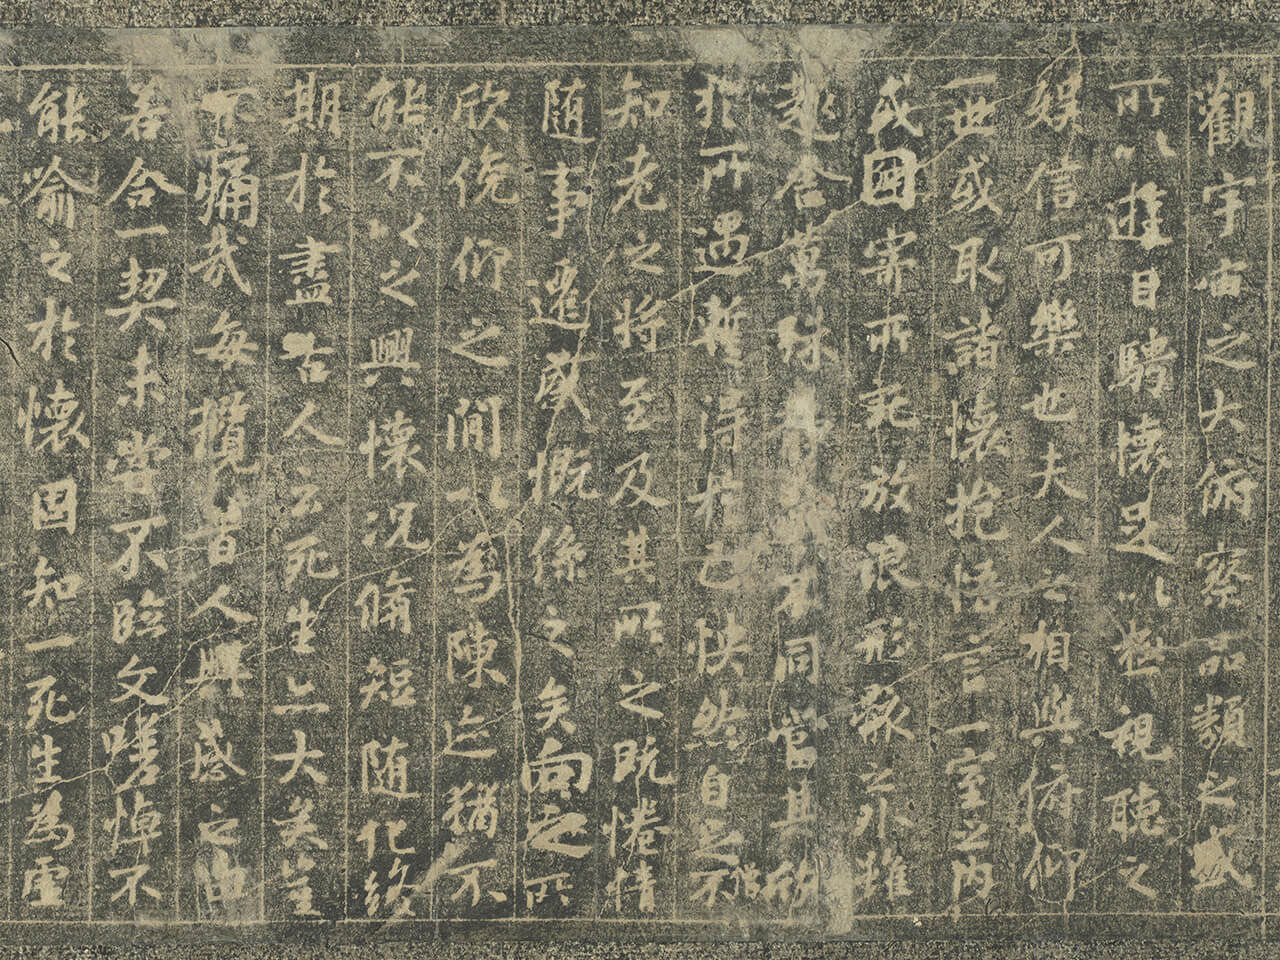 觀宇宙之大俯察品類之盛
所以遊目騁懷足以極視聽之
娛信可樂也夫人之相與俯仰
一世或取諸懷抱悟言一室之內
或因寄所託放浪形骸之外雖
趣舍萬殊靜躁不同當其欣
於所遇蹔得於己快然自足不
知老之將至及其所之既惓情
随事遷感慨係之矣向之所
欣俛仰之間以為陳迹猶不
能不以之興懷況脩短随化終
期於盡古人云死生亦大矣豈
不痛哉每攬昔人興感之由
若合一契未嘗不臨文嗟悼不
能喻之於懷固知一死生為虛